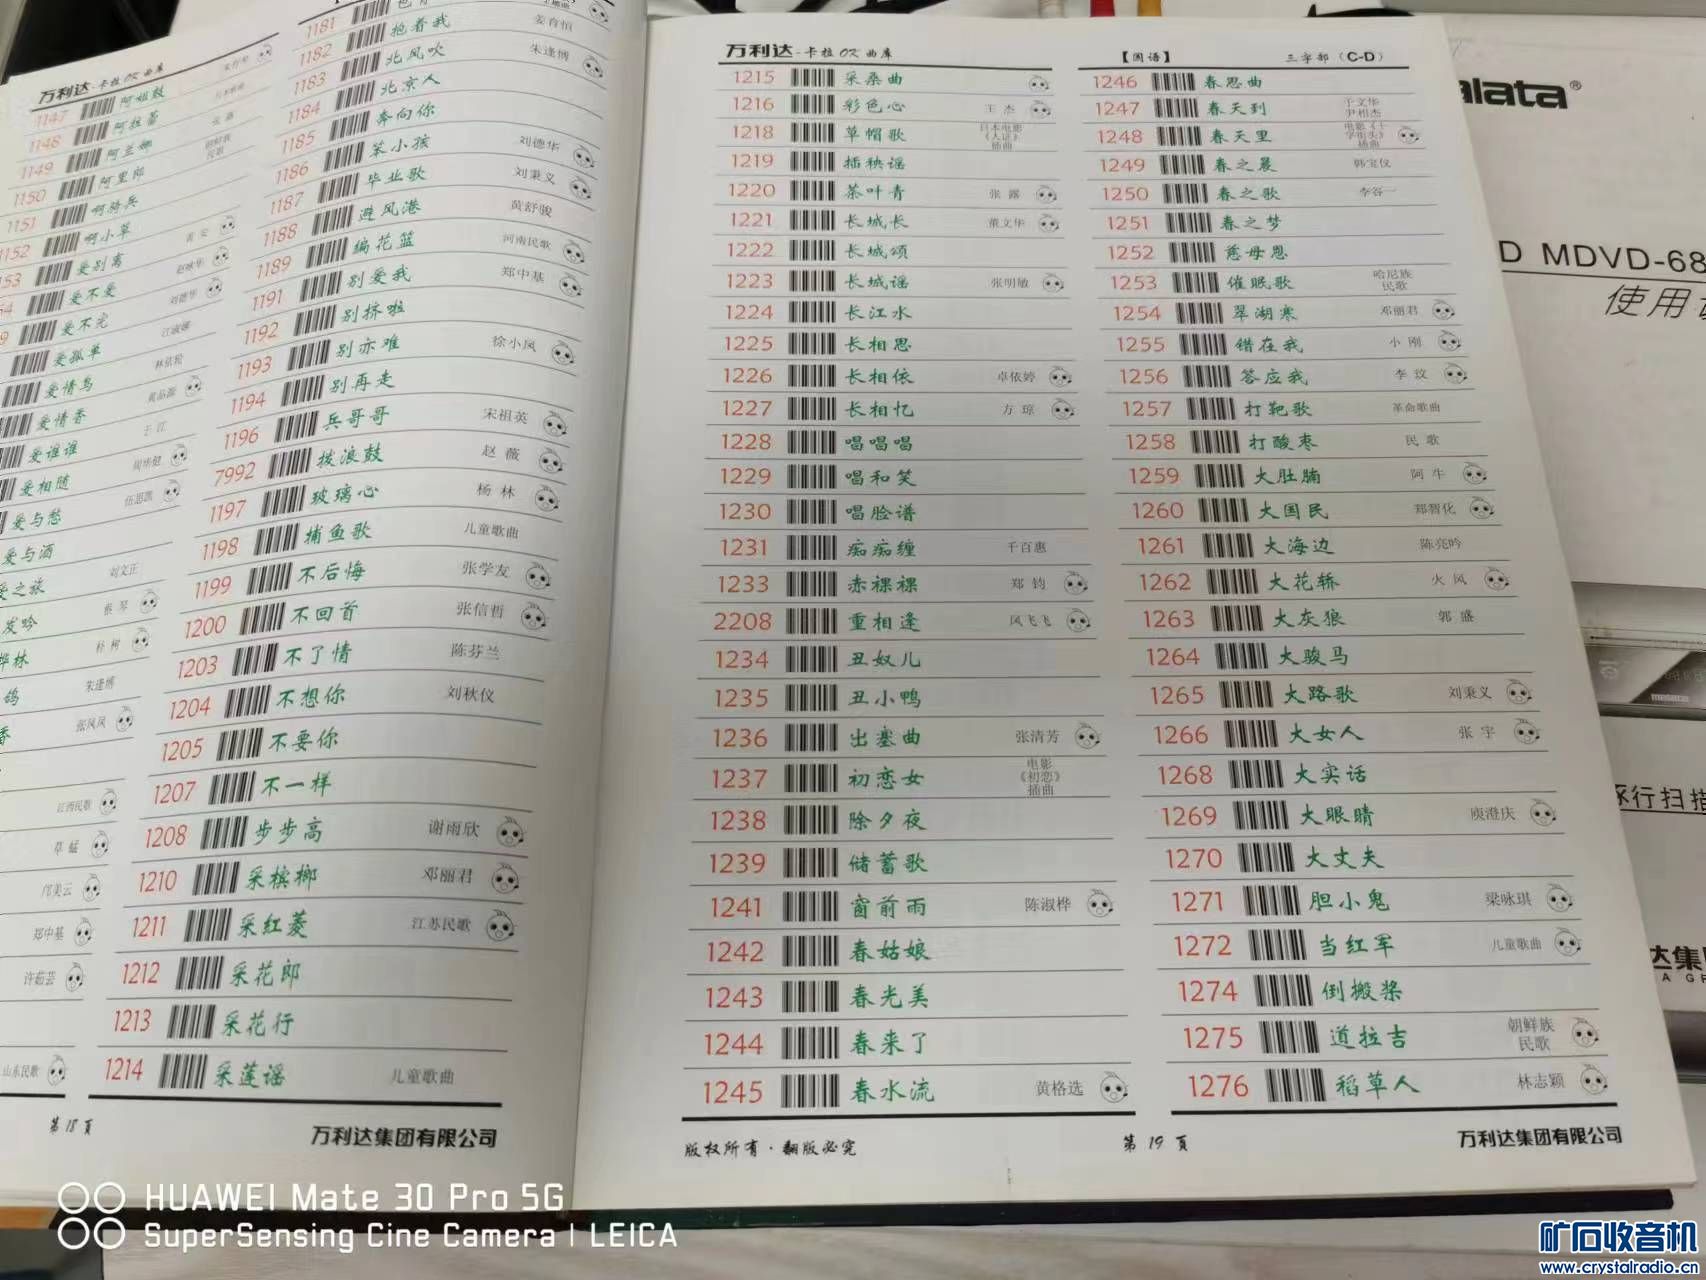 万利达·卡拉OK曲库
1147 阿姐鼓 朱哲琴
1148 阿拉蕾
1149 阿兰娜
1150 阿里郎 朝鲜族民歌
1151 啊骑兵
1152 啊小草
爱别离
爱不爱 赵咏华
爱不完 刘德华
爱孤单 江淑娜
爱情鸟 林依轮
爱情香 黄品源
爱谁谁 于江
爱相随 周华健
爱与愁 伍思凯
爱与酒
爱之旅 刘文正
蔡琴
朴树
朱逢博
张凤凤
江西民歌
草蜢
邝美云
郑中基
许茹芸
山东民歌
第18页
1181 抱着我 姜育恒
1182 北风吹 朱逢博
1183 北京人
1184 奔向你
1185 笨小孩 刘德华
1186 毕业歌 刘秉义
1187 避风港 黄舒骏
1188 编花篮 河南民歌
1189 别爱我 郑中基
1191 别挤啦
1192 别亦难 徐小凤
1193 别再走
1194 兵哥哥 宋祖英
1196 拨浪鼓 赵薇
7992 玻璃心 杨林
1197 捕鱼歌 儿童歌曲
1198 不后悔 张学友
1199 不回首 张信哲
1200 不了情 陈芬兰
1203 不想你 刘秋仪
1204 不要你
1205 不一样
1207
1208 步步高 谢雨欣
1210 采槟榔 邓丽君
1211 采红菱 江苏民歌
1212 采花郎
1213 采花行
1214 采莲谣 儿童歌曲
万利达集团有限公司
万利达·卡拉OK曲库 【国语】 三字部（C-D）
1215 采桑曲
1216 彩色心 王杰
1218 草帽歌 日本电影《人证》插曲
1219 插秧谣
1220 茶叶青 张露
1221 长城长 董文华
1222 长城颂
1223 长城谣 张明敏
1224 长江水
1225 长相思
1226 长相依 卓依婷
1227 长相忆 方琼
1228 唱唱唱
1229 唱和笑
1230 唱脸谱
1231 痴痴缠 千百惠
1233 赤裸裸 郑钧
2208 重相逢 凤飞飞
1234 丑奴儿
1235 丑小鸭
1236 出塞曲 张清芳
1237 初恋女 电影《初恋》插曲
1238 除夕夜
1239 储蓄歌
1241 窗前雨 陈淑桦
1242 春姑娘
1243 春光美
1244 春来了
1245 春水流 黄格选
1246 春思曲
1247 春天到 于文华 尹相杰
1248 春天里 电影《十字街头》插曲
1249 春之晨 韩宝仪
1250 春之歌 李谷一
1251 春之梦
1252 慈母恩
1253 催眠歌 哈尼族民歌
1254 翠湖寒 邓丽君
1255 错在我 小刚
1256 答应我 李玟
1257 打靶歌 革命歌曲
1258 打酸枣 民歌
1259 大肚腩 阿牛
1260 大国民 郑智化
1261 大海边 陈亮吟
1262 大花轿 火风
1263 大灰狼 郭盛
1264 大骏马
1265 大路歌 刘秉义
1266 大女人 张宇
1268 大实话
1269 大眼睛 庾澄庆
1270 大丈夫
1271 胆小鬼 梁咏琪
1272 当红军 儿童歌曲
1274 倒搬桨
1275 道拉吉 朝鲜族民歌
1276 稻草人 林志颖
版权所有·翻版必究 第19页 万利达集团有限公司
alata®
D MDVD-68
使用
逐行扫描
达集团
A GR
HUAWEI Mate 30 Pro 5G
SuperSensing Cine Camera | LEICA
矿石收音机
www.crystalradio.cn